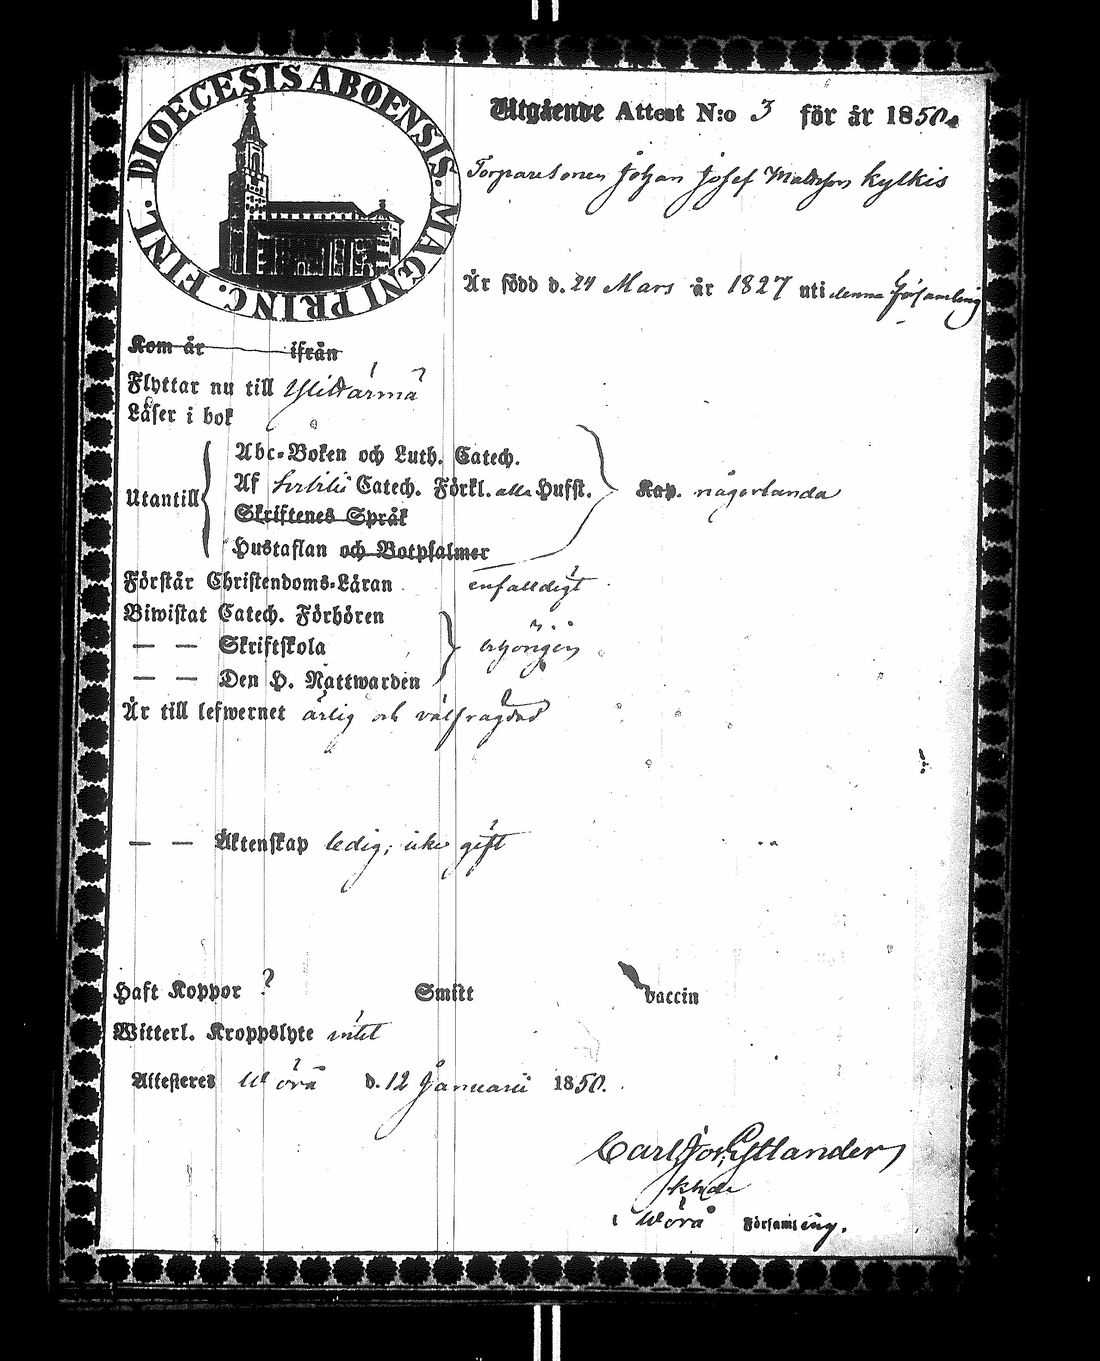 DIOECESIS ABOENSIS. MAGNI PRINC. FINL.
Utgående Attest N:o 3 för år 1850.
Torparesonen Johan Josef Mattsson Kylkis
Är född d. 24 Mars år 1827 uti denna Församling
Kom år ifrån
Flyttar nu till Ylihärmä
Läser i bok
Utantill
Abc-Boken och Luth. Catech.
Af Catech. Förkl. alla Hufst. Kap. någorlunda
Skriftenes Språk
Hustaflan och Botpsalmer
Förstår Christendoms-Läran enfalldigt
Biwistat Catech. Förhören
— — Skriftskola behörigen
— — Den H. Nattwarden
Är till lefwernet ärlig och välfrägdad
— — Äktenskap ledig; icke gift
Haft Koppor ? Smitt vaccin
Witterl. Kroppslyte intet
Attesteres Wörå d. 12 Januarii 1850.
Carl
i Wörå Församling.